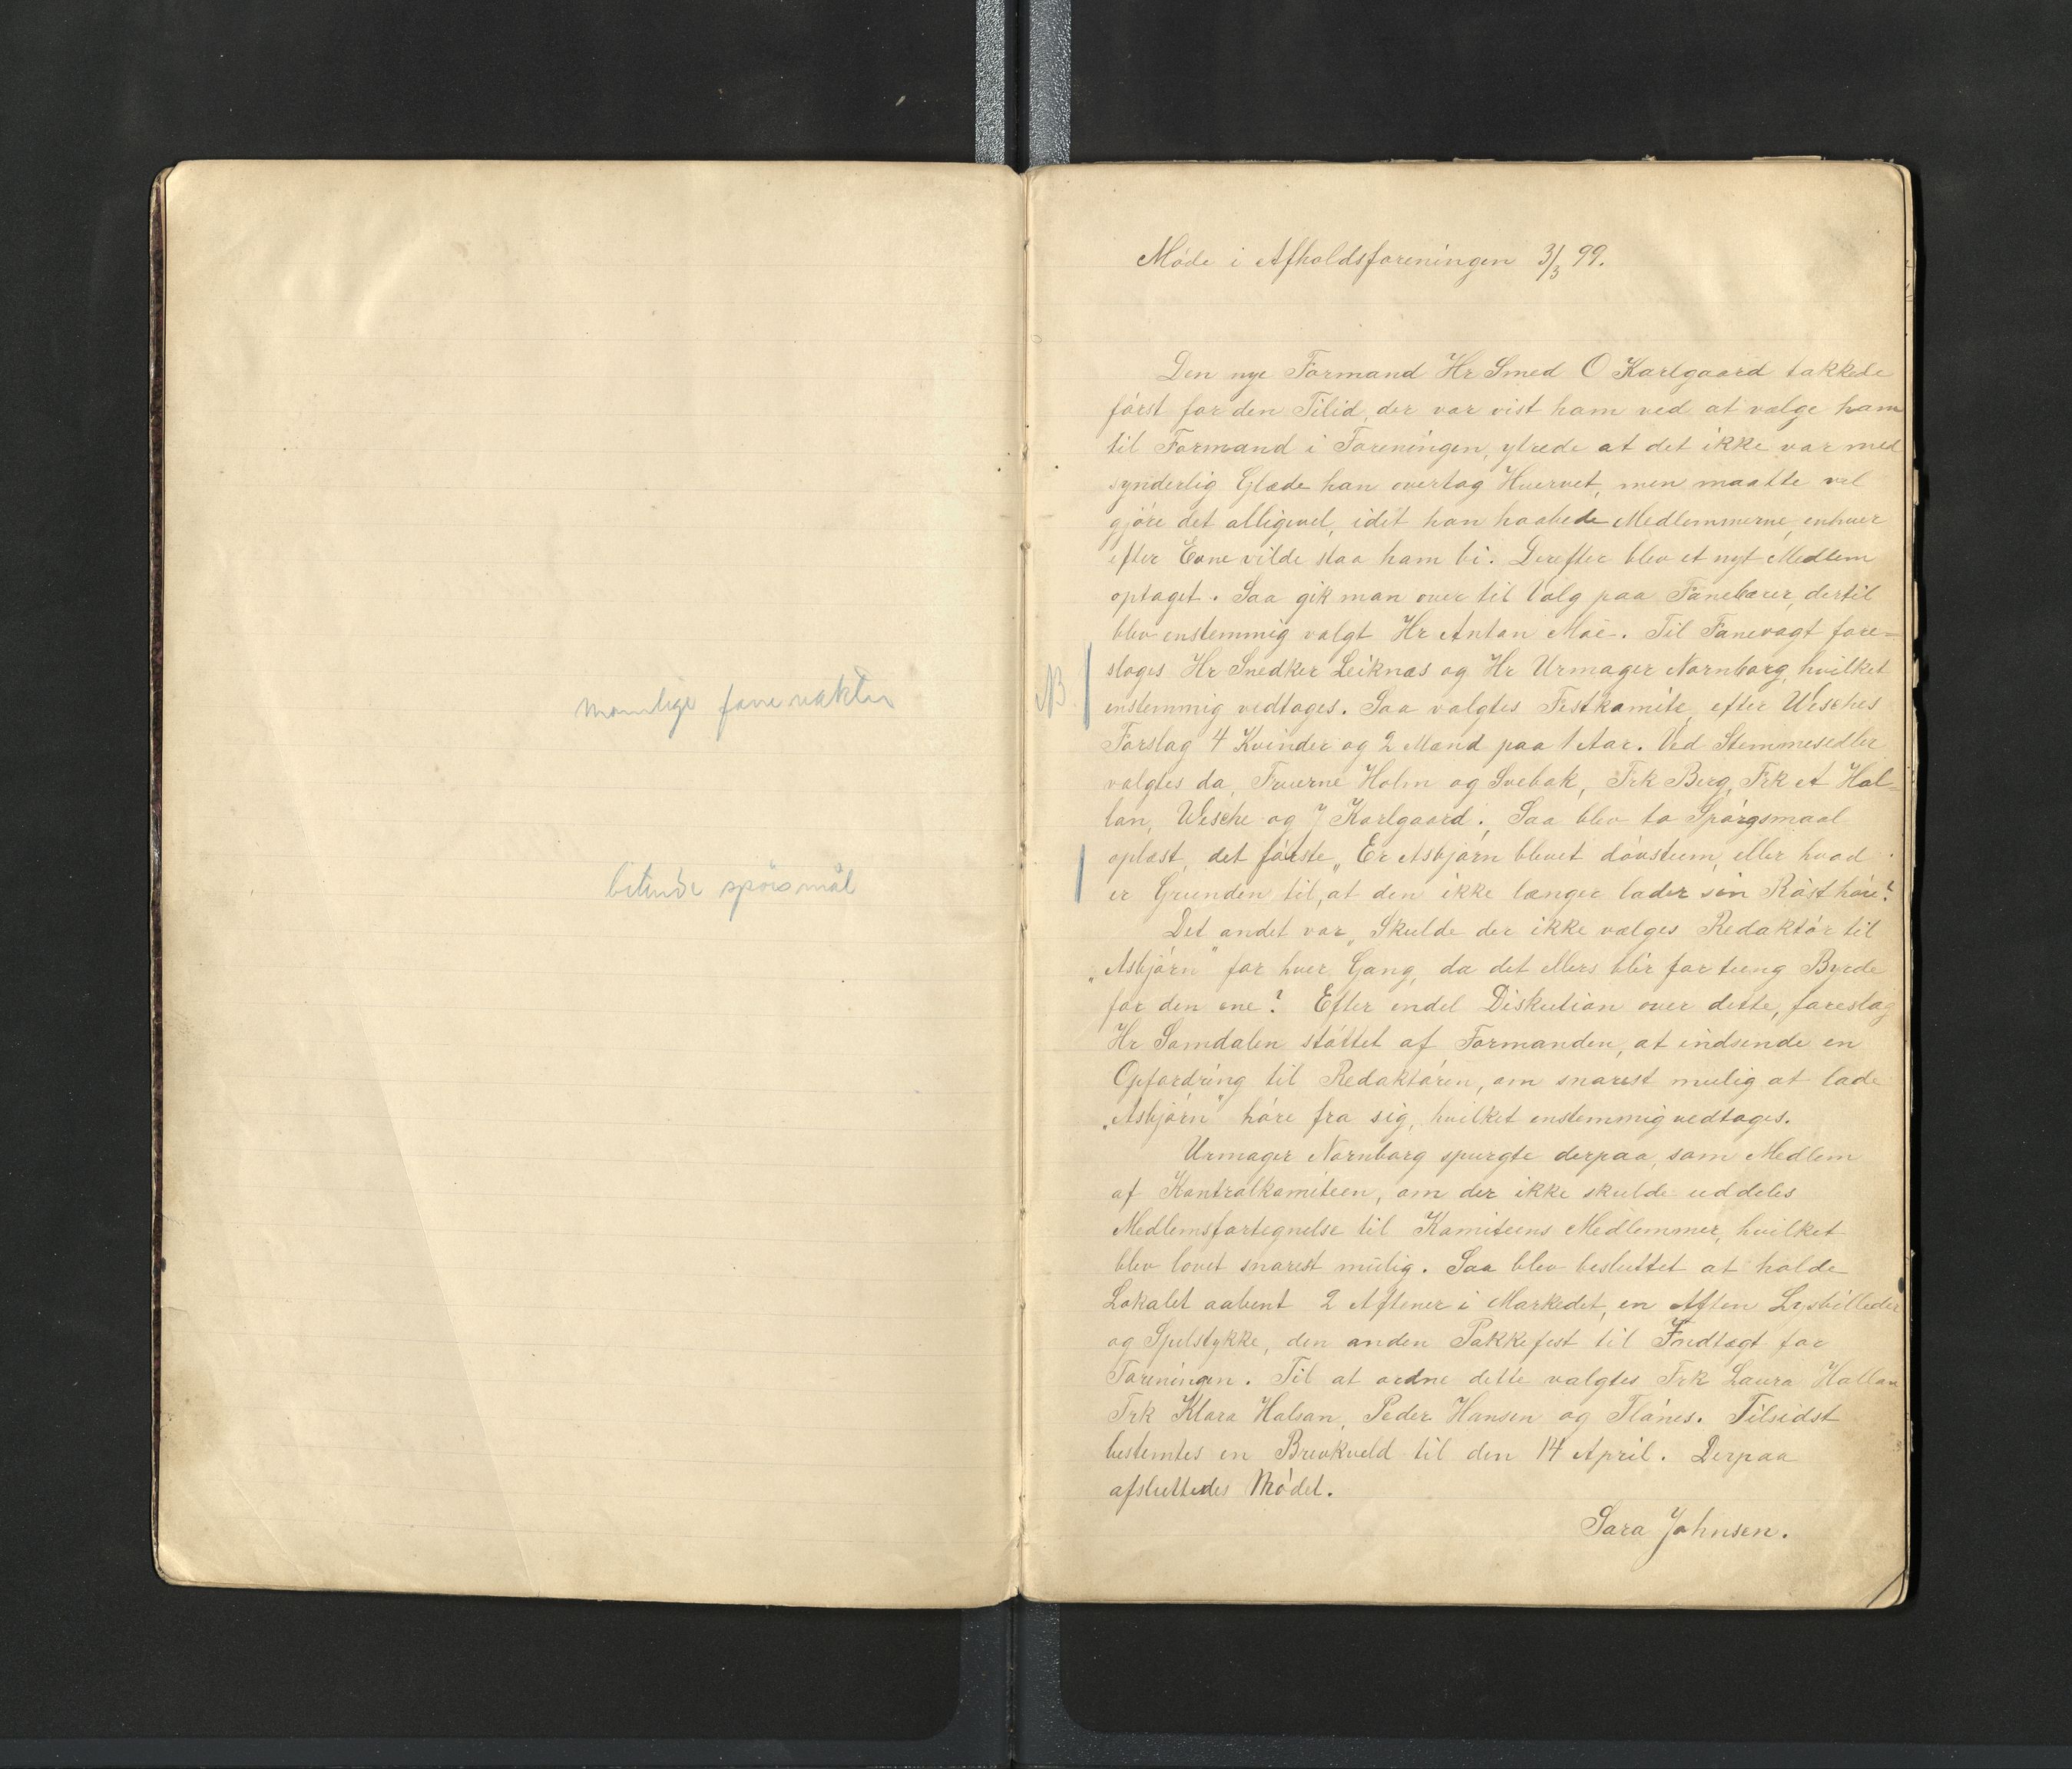 manlige fanevakter
bitende spörsmål
Möde i Afholdsforeningen 3/3 99.
Den nye Formand Hr Smed O Karlgaard takkede
först for den Tilid, der var vist ham ved at vælge ham
til Formand i Foreningen, ytrede at det ikke var med
synderlig Glæde han overtog Hvervet, men maatte vel
gjöre det alligevel, idet han haabede Medlemmerne, enhver
efter Evne vilde staa ham bi. Derefter blev et nyt Medlem
optaget. Saa gik man over til Valg paa Fanebærer, dertil
blev enstemmig valgt Hr Anton Moe. Til Fanevagt fore=
NB
sloges Hr Snedker Leiknæs og Hr Urmager Nornborg, hvilket
enstemmig vedtoges. Saa valgtes Festkomite, efter Wesches
Forslag 4 Kvinder og 2 Mænd paa 1 Aar. Ved Stemmesedler
valgtes da, Fruerne Holm og Svebak, Frk Berg, Frk A Hal-
lan, Wesche og J Karlgaard. Saa blev to Spörgsmaal
oplæst, det förste „Er Asbjörn blevet dövstum, eller hvad
er Grunden til, at den ikke længer lader sin Röst höre?
Det andet var „Skulde der ikke vælges Redaktör til
„Asbjörn" for hver Gang, da det ellers blir for tung Byrde
for den ene? Efter endel Diskution over dette, foreslog
Hr Somdalen stöttet af Formanden, at indsende en
Opfordring til Redaktören, om snarest mulig at lade
„Asbjörn" höre fra sig, hvilket enstemmig vedtoges.
Urmager Nornborg spurgte derpaa, som Medlem
af Kontrolkomiteen, om der ikke skulde uddeles
Medlemsfortegnelse til Komiteens Medlemmer, hvilket
blev lovet snarest mulig. Saa blev besluttet at holde
Lokalet aabent 2 Aftener i Markedet, en Aften Lysbilleder
og Spelstykke, den anden Pakkefest til Indtægt for
Foreningen. Til at ordne dette valgtes Frk Laura Hallan
Frk Klara Halsan, Peder Hansen og Flånes. Tilsidst
bestemtes en Brevkveld til den 14 April. Derpaa
afsluttedes Mödet.
Sara Johnsen.